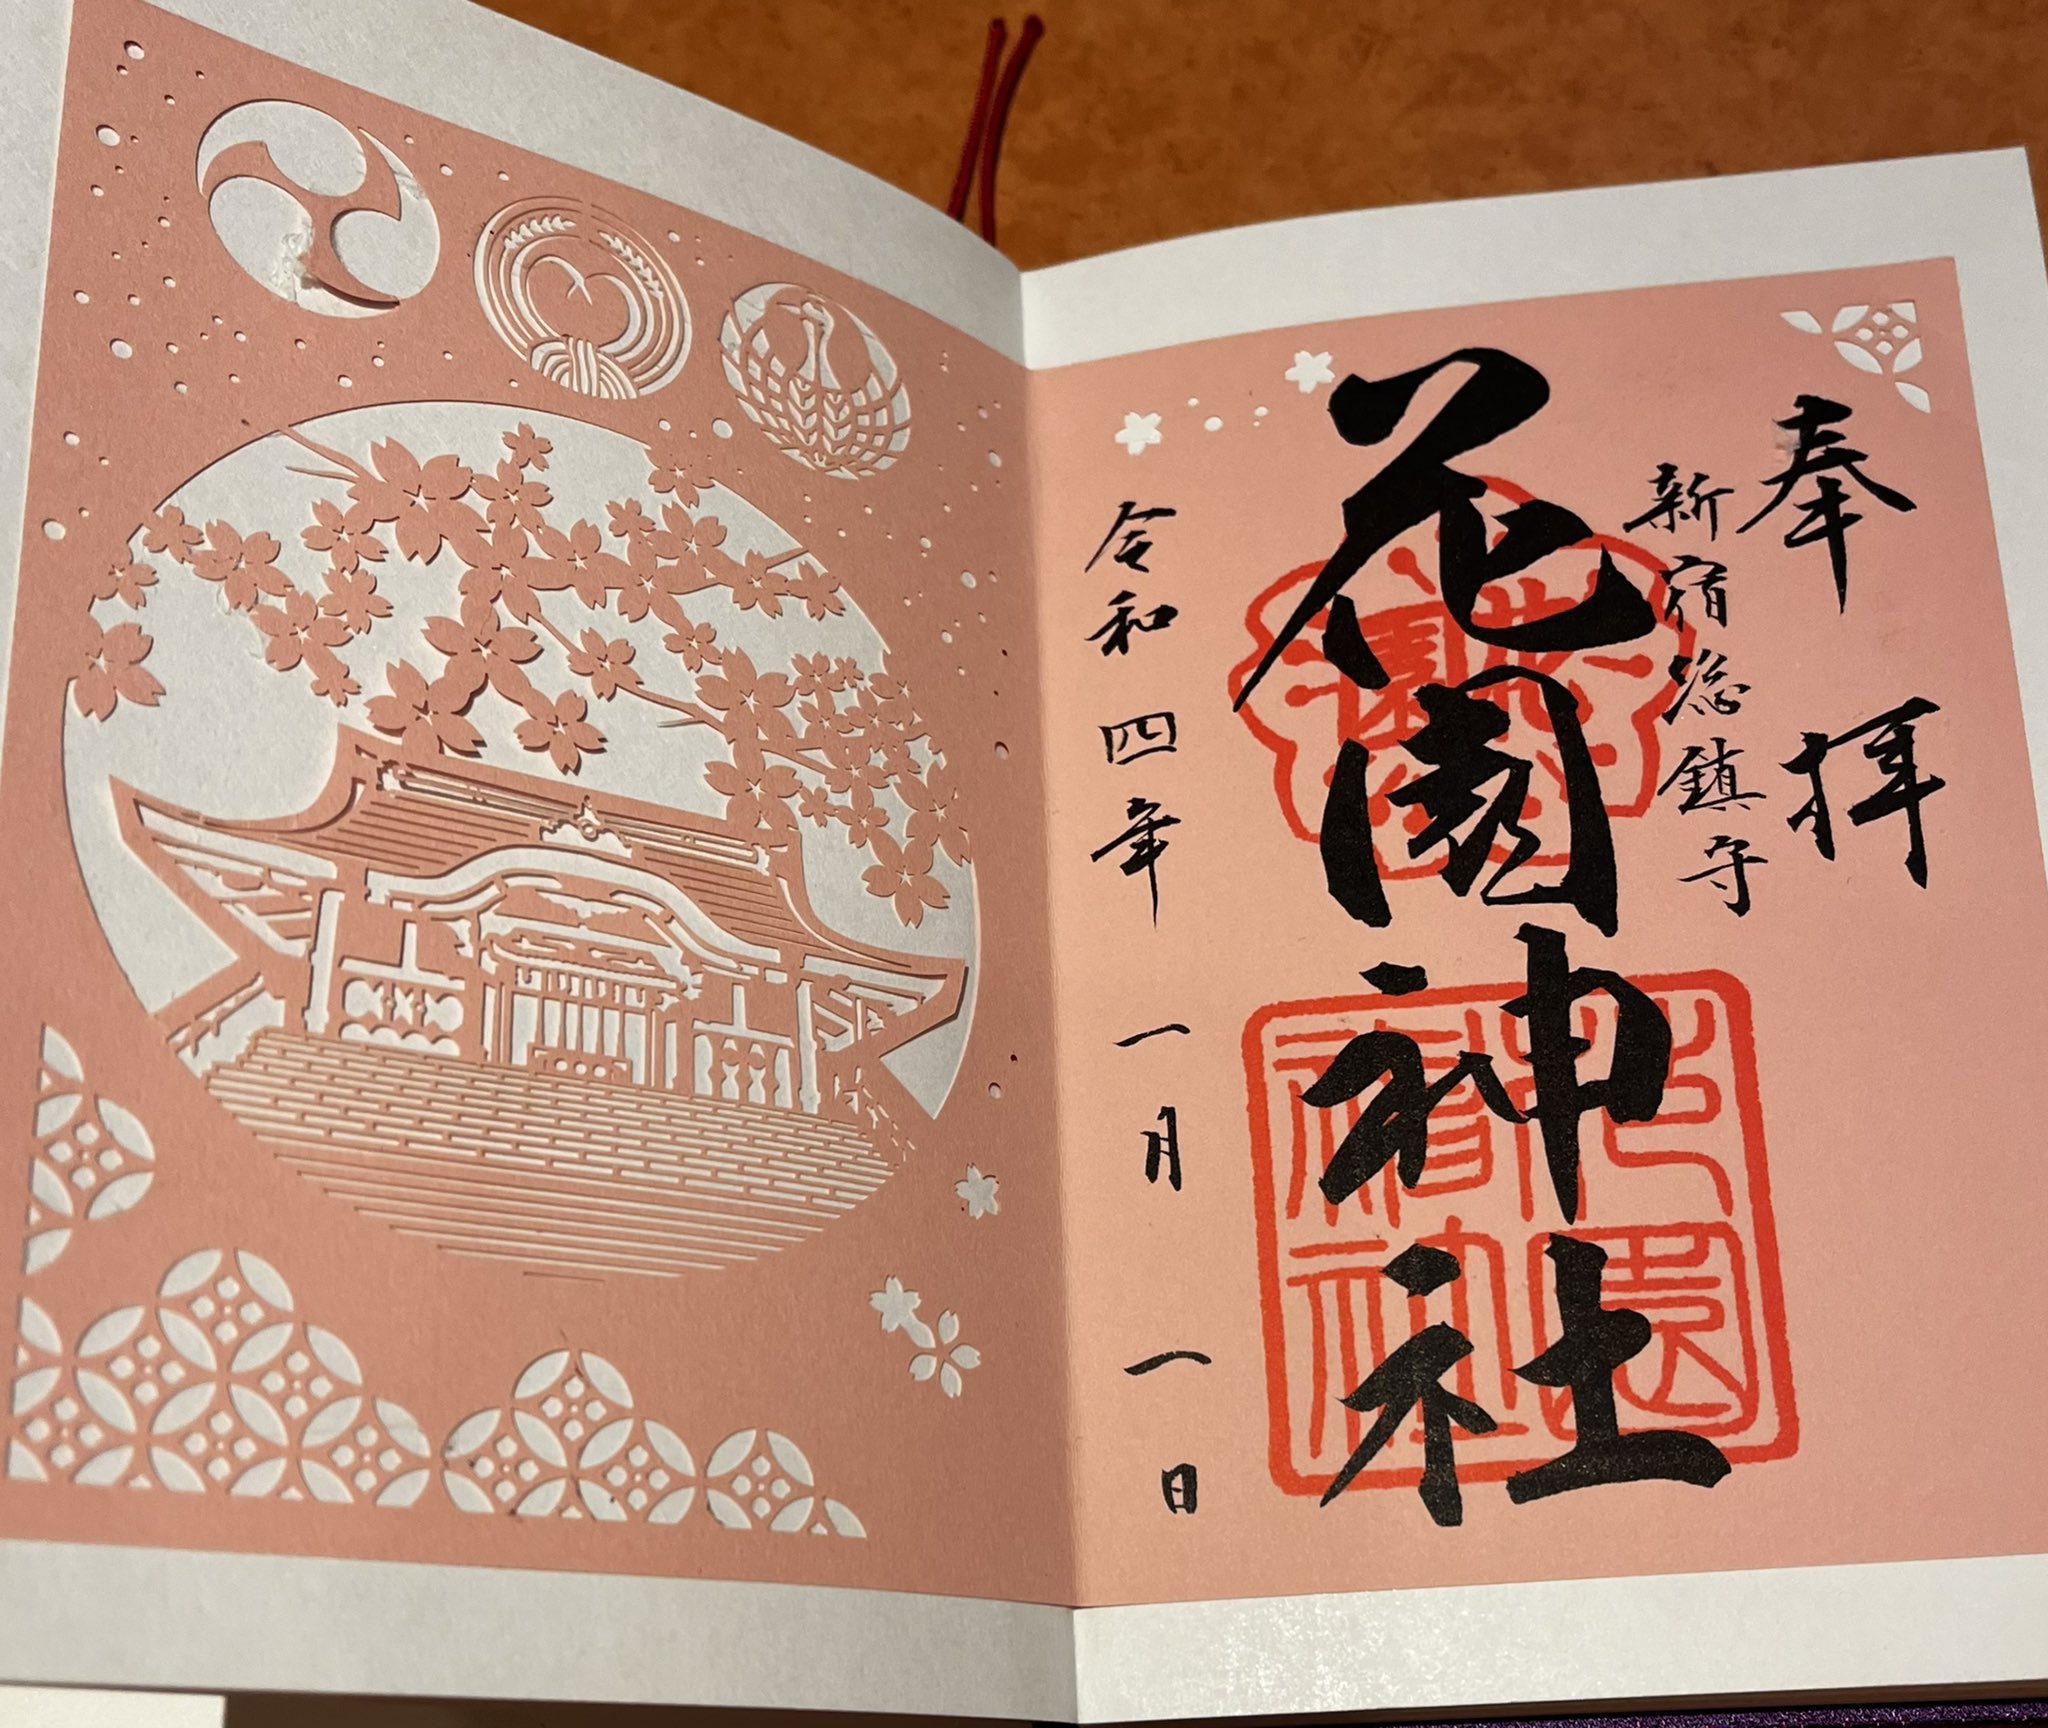 奉拝
新宿総鎮守
花園神社
花園
花園神社
令和四年一月一日